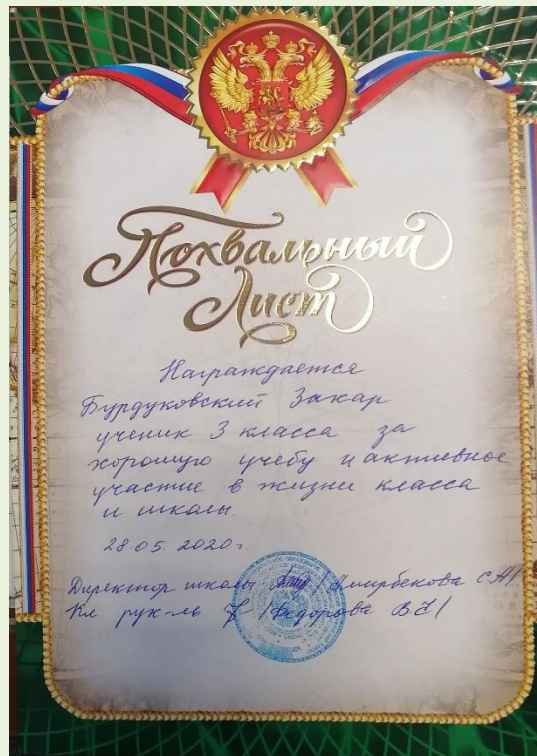 Похвальный
Лист
Награждается
Бурдуковский Захар
ученик 3 класса за
хорошую учебу и активное
участие в жизни класса
и школы.
28.05.2020г.
Директор школы /Амирбекова С.А/
Кл. рук-ль /Федорова В.Н/